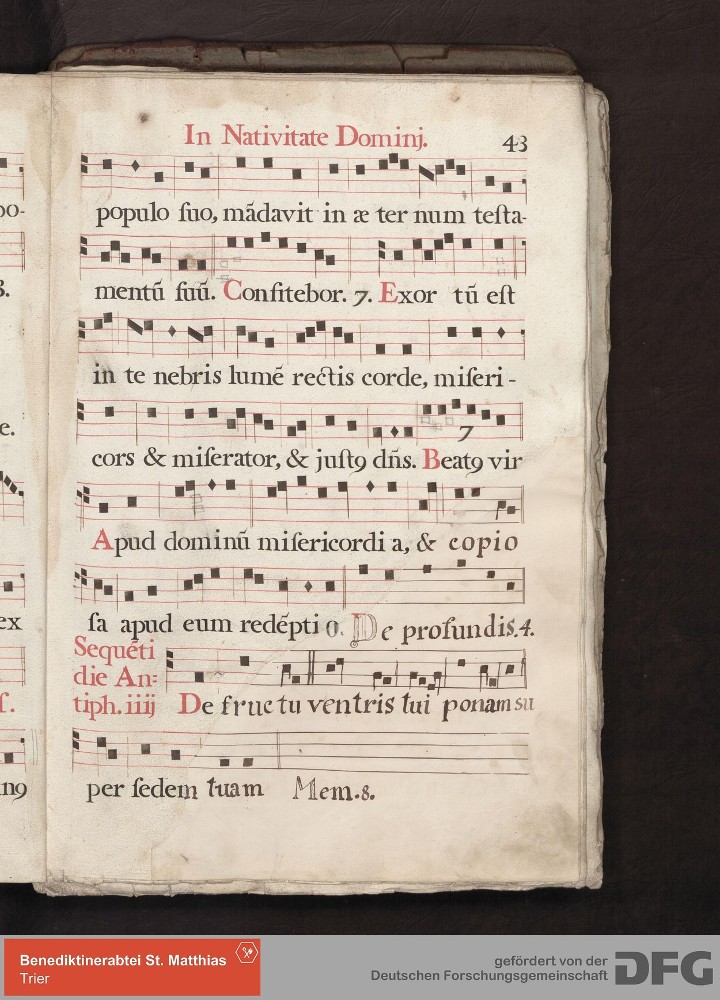 In Nativitate Dominj.
43
populo ſuo, mādavit in æ ter num teſta-
mentū ſuū. Confitebor. 7. Exor tū eſt
in te nebris lumē rectis corde, miſeri-
cors & miſerator, & juſtꝯ dn̄s. Beatꝯ vir
7
Apud dominū miſericordi a, & copio
ſa apud eum redēpti o. De profundis.4.
Sequēti
die An:
tiph. iiij De fructu ventris tui ponam su
per ſedem tuam Mem.8.
oo-
3.
e.
ex
ſ.
inꝯ
Benediktinerabtei St. Matthias
Trier
gefördert von der
Deutschen Forschungsgemeinschaft
DFG